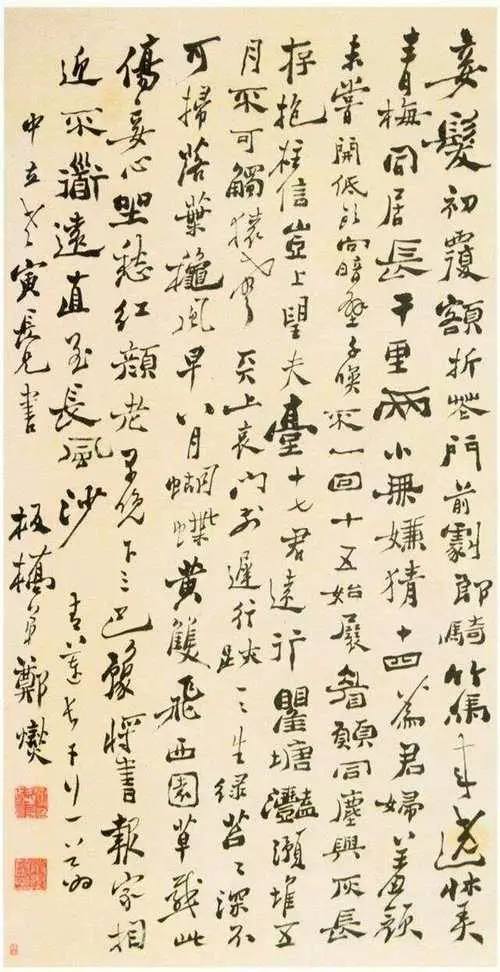 妾髮初覆額折花門前劇郎騎竹馬來遶牀弄
青梅同居長干里兩小無嫌猜十四為君婦羞顏
未嘗開低頭向暗壁千喚不一回十五始展眉願同塵與灰長
存抱柱信豈上望夫臺十七君遠行瞿塘灩澦堆五
月不可觸猿聲天上哀門前遲行跡一一生綠苔苔深不
可掃落葉穐風早八月蝴蝶黃雙飛西園草感此
傷妾心坐愁紅顏老早晚下三巴豫將書報家相
近不道遠直至長風沙 青蓮長干行一首為
中立老寅長兄書 板橋弟鄭燮